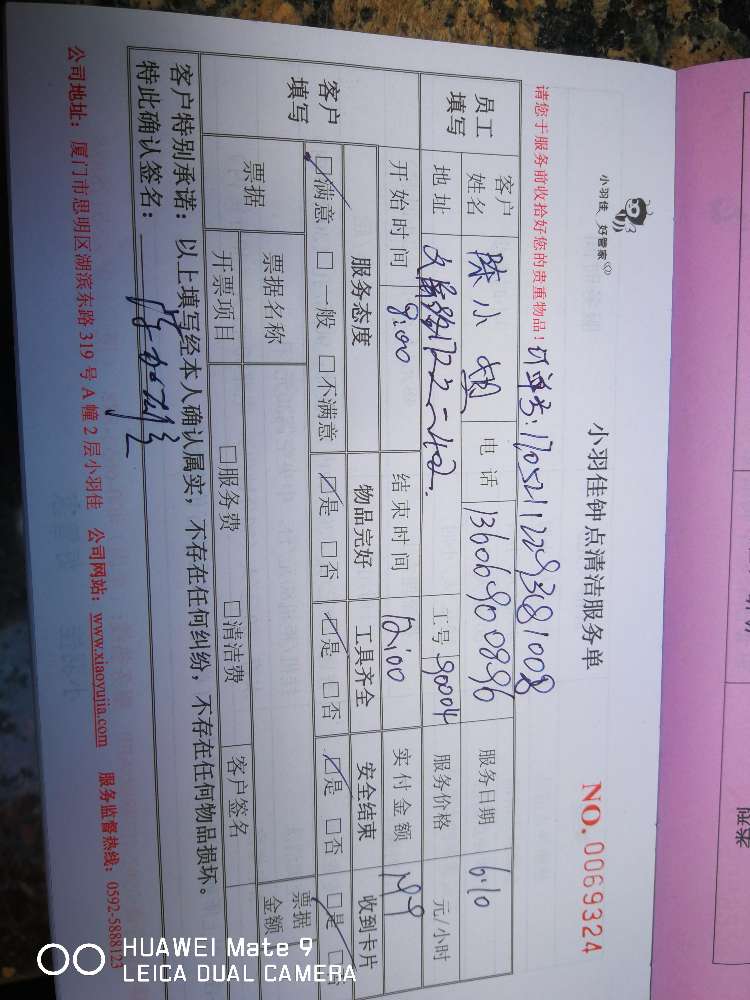 小羽佳 好管家
小羽佳钟点清洁服务单
NO. 0069324
请您于服务前收拾好您的贵重物品! 订单号:17052112293681008
员工填写 客户姓名 陈小娟 电话 13606900896 服务日期 6.10
地址 工号 90004 服务价格 元/小时
开始时间 9:00 结束时间 12:00 实付金额 199
客户填写 服务态度 物品完好 工具齐全 安全结束 收到卡片
☑满意 □一般 □不满意 ☑是 □否 ☑是 □否 ☑是 □否 ☑是 □否
票据 票据名称 票据金额
开票项目 □服务费 □清洁费 客户签名
客户特别承诺: 以上填写经本人确认属实,不存在任何纠纷,不存在任何物品损坏。
特此确认签名:
公司地址: 厦门市思明区湖滨东路 319 号 A 幢 2 层小羽佳 公司网站: www.xiaoyujia.com 服务监督热线: 0592-5888123
HUAWEI Mate 9
LEICA DUAL CAMERA